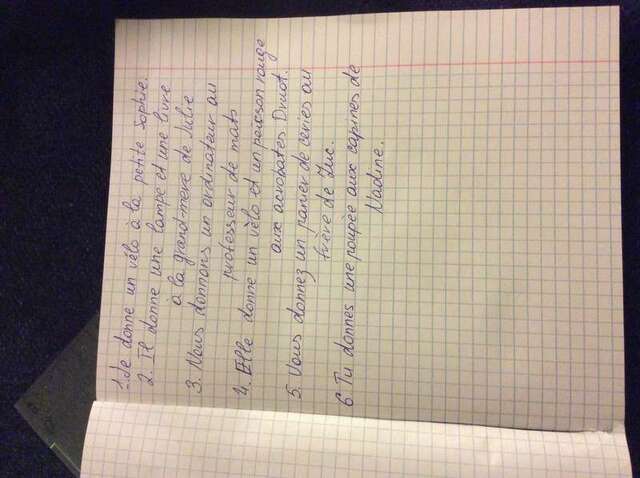 1. Je donne un vélo à la petite Sophie.
2. Il donne une lampe et une livre
à la grand-mère de Julie
3. Nous donnons un ordinateur au
professeur de mats
4. Elle donne un vélo et un poisson rouge
aux acrobates Druot.
5. Vous donnez un panier de ceries au
frère de Luc.
6. Tu donnes une poupée aux copines de
Nadine.